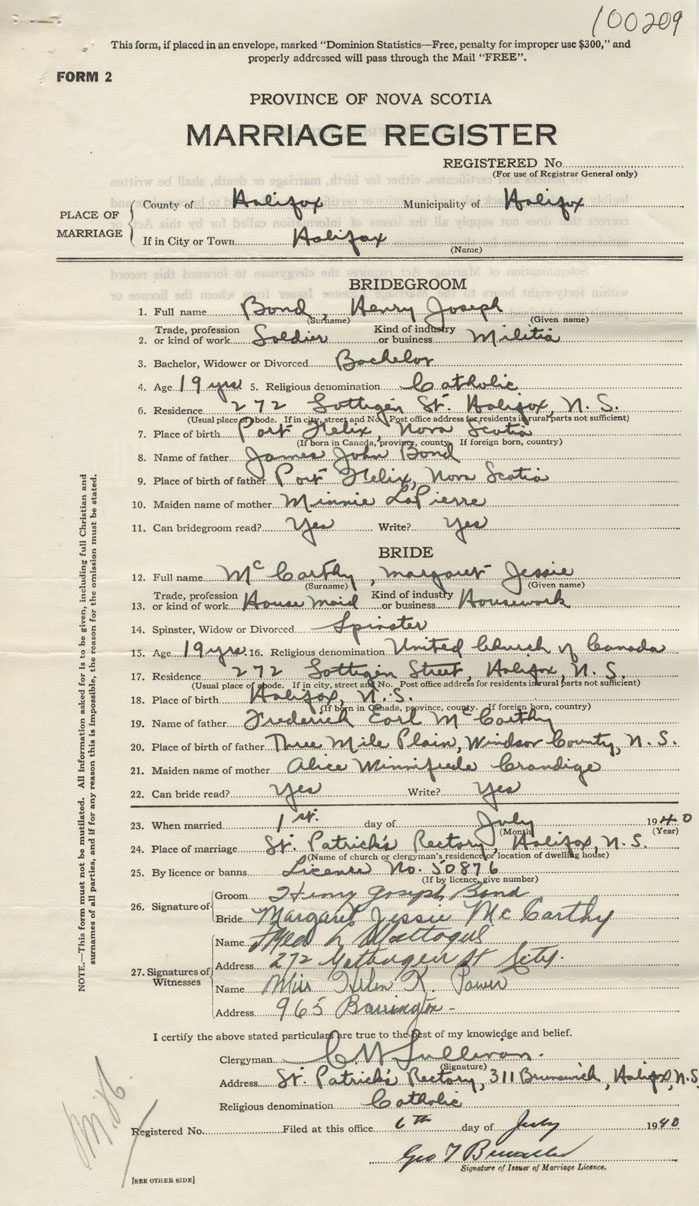 100209
This form, if placed in an envelope, marked "Dominion Statistics—Free, penalty for improper use $300," and
properly addressed will pass through the Mail "FREE".
FORM 2
PROVINCE OF NOVA SCOTIA
MARRIAGE REGISTER
REGISTERED No.
(For use of Registrar General only)
PLACE OF MARRIAGE
County of Halifax Municipality of Halifax
If in City or Town Halifax
(Name)
BRIDEGROOM
1. Full name Bond, Henry Joseph
(Surname) (Given name)
2. Trade, profession or kind of work Soldier Kind of industry or business Militia
3. Bachelor, Widower or Divorced Bachelor
4. Age 19 yrs 5. Religious denomination Catholic
6. Residence 272 Gottigen St. Halifax, N.S.
(Usual place of abode. If in city, street and No. Post office address for residents in rural parts not sufficient)
7. Place of birth Port Felix, Nova Scotia
(If born in Canada, province, county. If foreign born, country)
8. Name of father James John Bond
9. Place of birth of father Port Felix, Nova Scotia
10. Maiden name of mother Minnie LaPierre
11. Can bridegroom read? Yes Write? Yes
BRIDE
12. Full name McCarthy, Margaret Jessie
(Surname) (Given name)
13. Trade, profession or kind of work House maid Kind of industry or business Housework
14. Spinster, Widow or Divorced Spinster
15. Age 19 yrs. 16. Religious denomination United Church of Canada
17. Residence 272 Gottigen Street, Halifax, N.S.
(Usual place of abode. If in city, street and No. Post office address for residents in rural parts not sufficient)
18. Place of birth Halifax, N.S.
(If born in Canada, province, county. If foreign born, country)
19. Name of father Frederick Earl McCarthy
20. Place of birth of father Three Mile Plain, Windsor County, N.S.
21. Maiden name of mother Alice Winnifiede Crandige
22. Can bride read? Yes Write? Yes
23. When married 1st. day of July 1940
(Month) (Year)
24. Place of marriage St. Patrick's Rectory, Halifax, N.S.
(Name of church or clergyman's residence or location of dwelling house)
25. By licence or banns License No. 50876
(If by licence, give number)
26. Signature of
Groom Henry Joseph Bond
Bride Margaret Jessie McCarthy
27. Signatures of Witnesses
Name
Address 272 St City.
Name Miss Helen K. Power
Address 965 Barrington
I certify the above stated particulars are true to the best of my knowledge and belief.
Clergyman Sullivan.
(Signature)
Address St. Patrick's Rectory, 311 Brunswick, Halifax, N.S.
Religious denomination Catholic
Registered No. Filed at this office 6th day of July 1940
Geo T
Signature of Issuer of Marriage Licence.
[SEE OTHER SIDE]
NOTE.—This form must not be mutilated. All information asked for is to be given, including full Christian and
surnames of all parties, and if for any reason this is impossible, the reason for the omission must be stated.